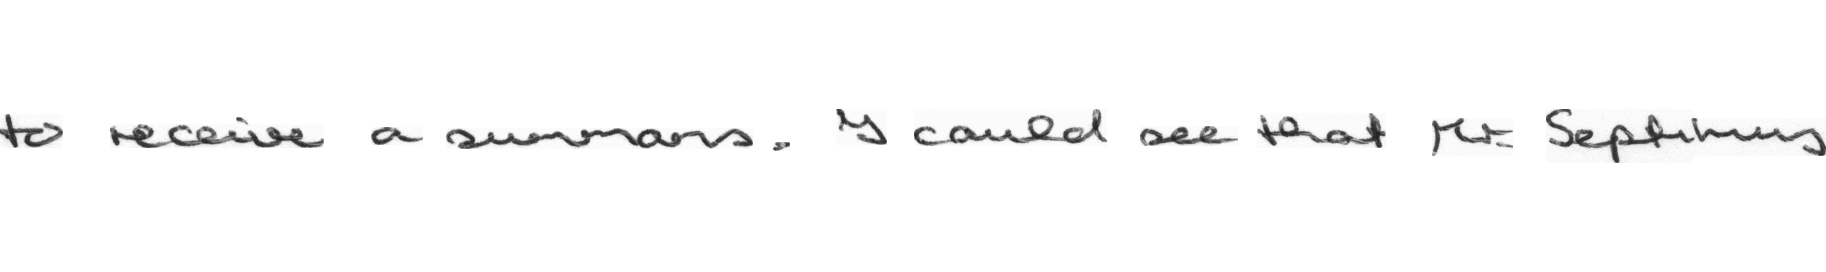 to receive a summons. I could see that Mr. Septimus